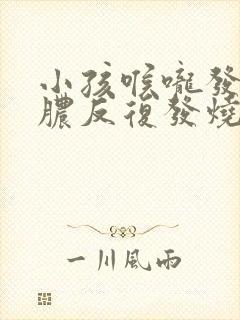 小孩喉嚨發
膿反復發燒
一川風雨